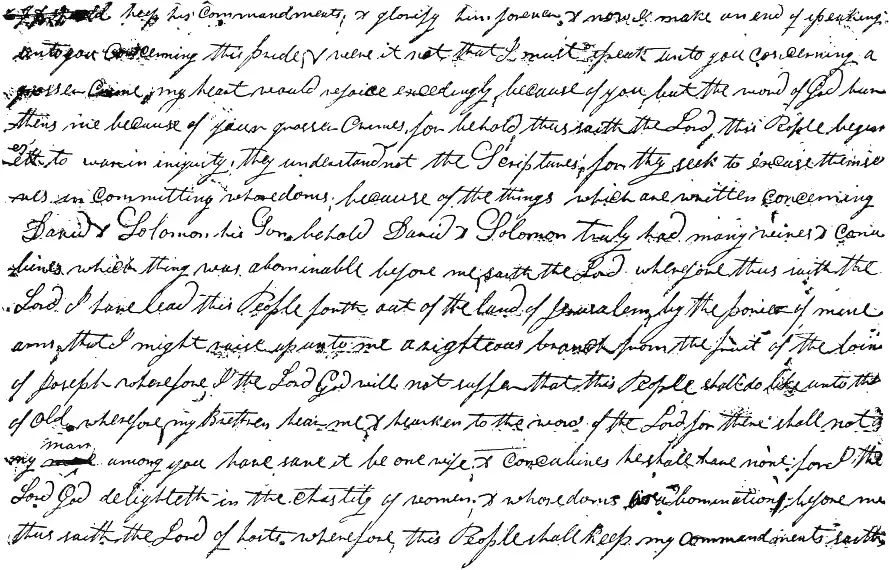 keep his Commandments, & glorify him forever, & now I make an end of speaking
unto you concerning this pride, & were it not that I must speak unto you concerning a
grosser Crime, my heart would rejoice exceedingly, because of you, but the word of God burn
thens me because of your grosser Crimes, for behold thus saith the Lord, this People begin
eth to wax in iniquity, they understand not the Scriptures, for thy seek to excuse themse
ves in committing whoredoms; because of the things which are written concerning
David & Solomon his Son, behold David & Solomon truly had many wives & Concu
bines which thing was abominable before me, saith the Lord wherefore thus saith the
Lord I have lead this People forth out of the land of Jerusalem, by the power of mine
arm, that I might raise up unto me a righteous branch from the fruit of the loins
of Joseph wherefore, I the Lord God will not suffer that this People shall do like unto them
of Old. wherefore, my Brethren hear me & hearken to the word of the Lord for there shall not a
my man among you have save it be one wife, & Concubines he shall have none for I the
Lord God delighteth in the chastity of women, & whoredoms abomination before me
thus saith the Lord of hosts. wherefore, this People shall keep my commandments saith